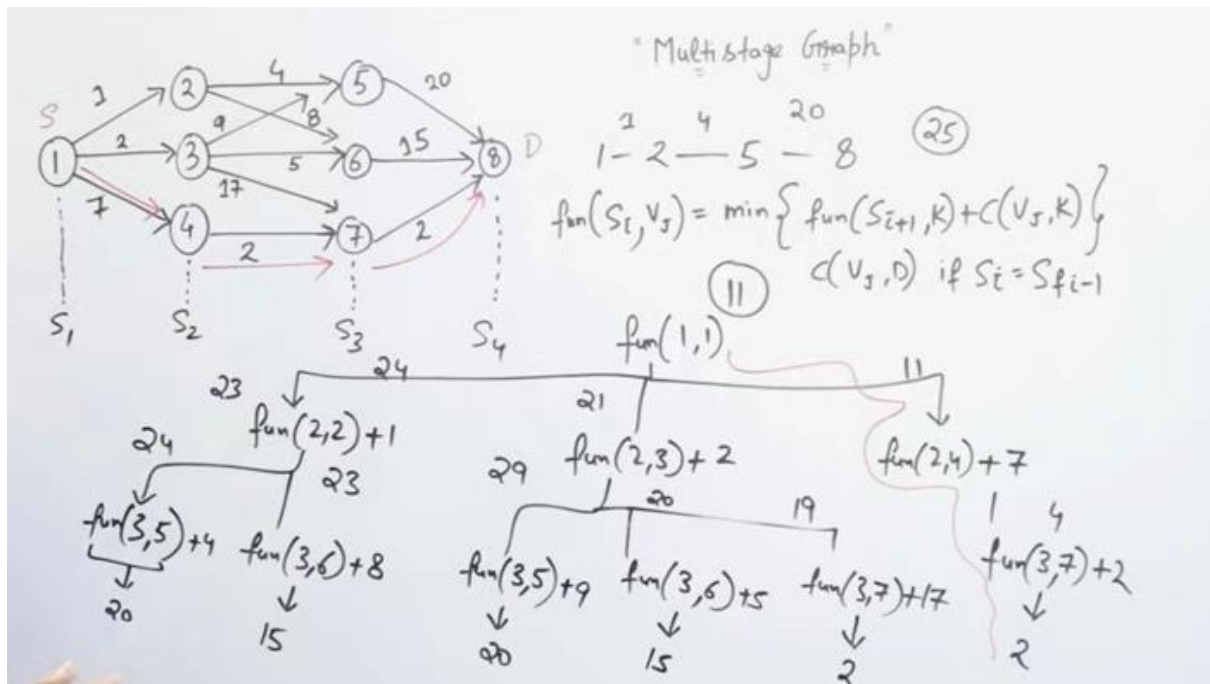 "Multistage Graph"
S
1
2
7
1
2
3
4
4
9
8
5
17
2
5
6
7
20
15
2
8
D
S1
S2
S3
S4
1 4 20
1 - 2 — 5 — 8
25
fun(Si, VJ) = min{ fun(Si+1, K) + C(VJ, K) }
C(VJ, D) if Si = Sfi-1
11
fun(1,1)
24
11
23
fun(2,2)+1
21
fun(2,3)+2
fun(2,4)+7
24
23
29
20
19
4
fun(3,5)+4
fun(3,6)+8
fun(3,5)+9
fun(3,6)+5
fun(3,7)+17
fun(3,7)+2
20
15
20
15
2
2